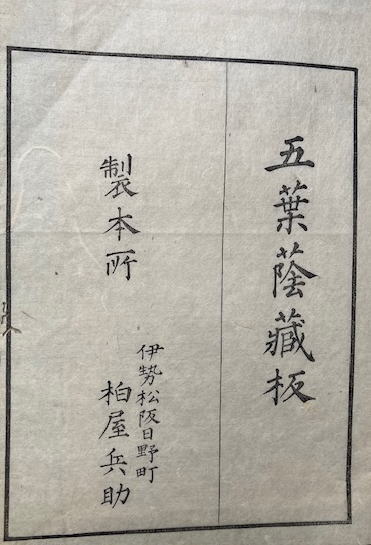 五葉蔭藏板
製本所
伊勢松阪日野町
柏屋兵助